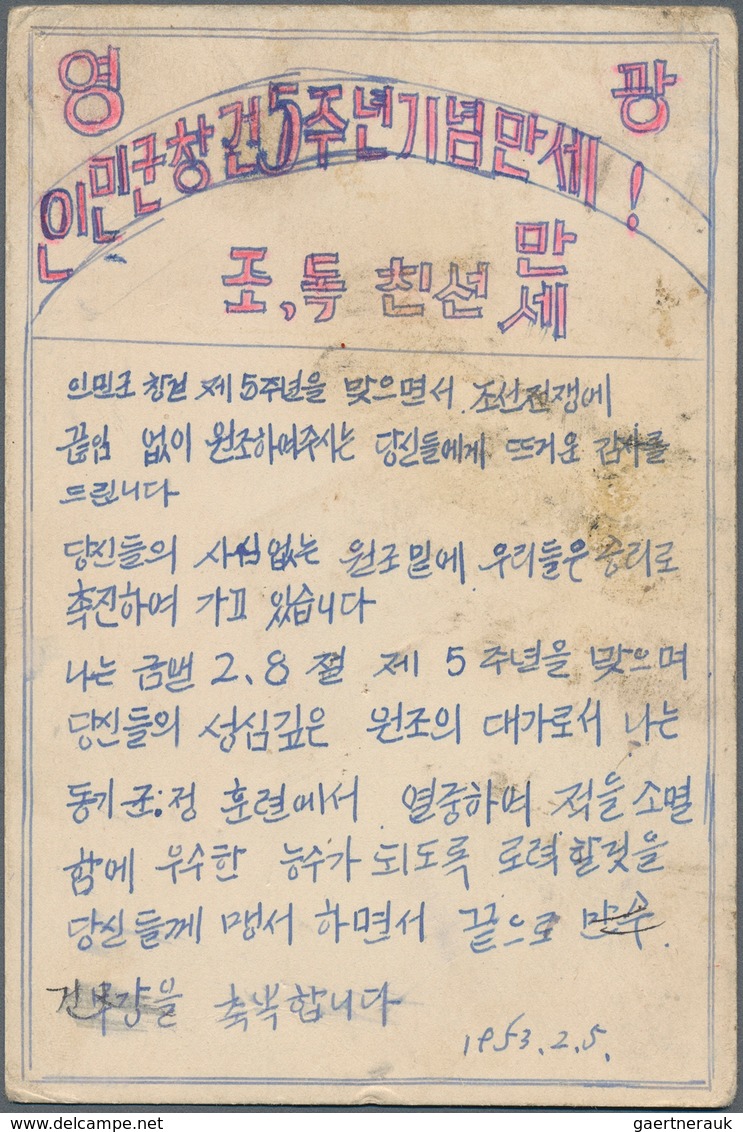 영 광
인민군창건5주년기념만세!
조,독 친선 만세
인민군 창건 제5주년을 맞으면서 조선전쟁에
끊임 없이 원조하여주시는 당신들에게 뜨거운 감사를
드립니다
당신들의 사심없는 원조밑에 우리들은 승리로
촉진하여 가고 있습니다
나는 금번 2.8 절 제 5 주년을 맞으며
당신들의 성심깊은 원조의 대가로서 나는
동기 군;정 훈련에서 열중하여 적을 소멸
함에 우수한 능수가 되도록 로력할것을
당신들께 맹서 하면서 끝으로 만수.
건강을 축복합니다
1953.2.5.
gaertnerauk